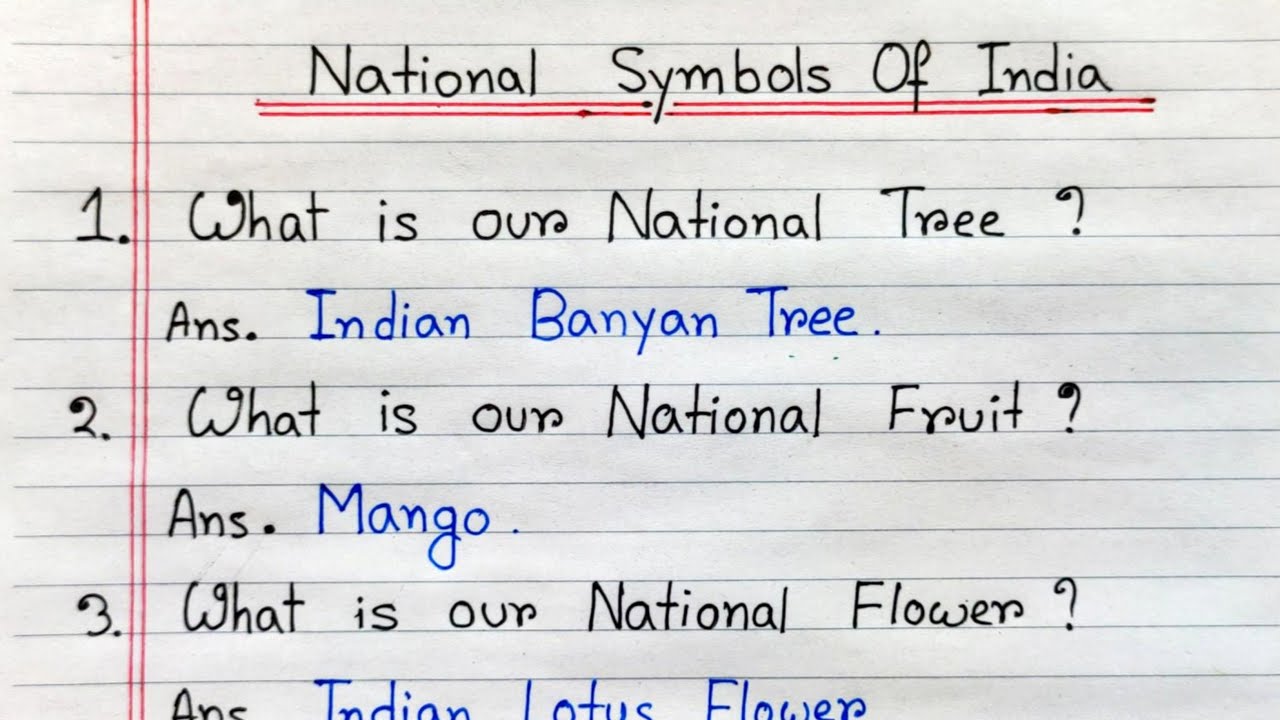 National Symbols Of India
1. What is our National Tree ?
Ans. Indian Banyan Tree.
2. What is our National Fruit ?
Ans. Mango.
3. What is our National Flower ?
Ans. Indian Lotus Flower